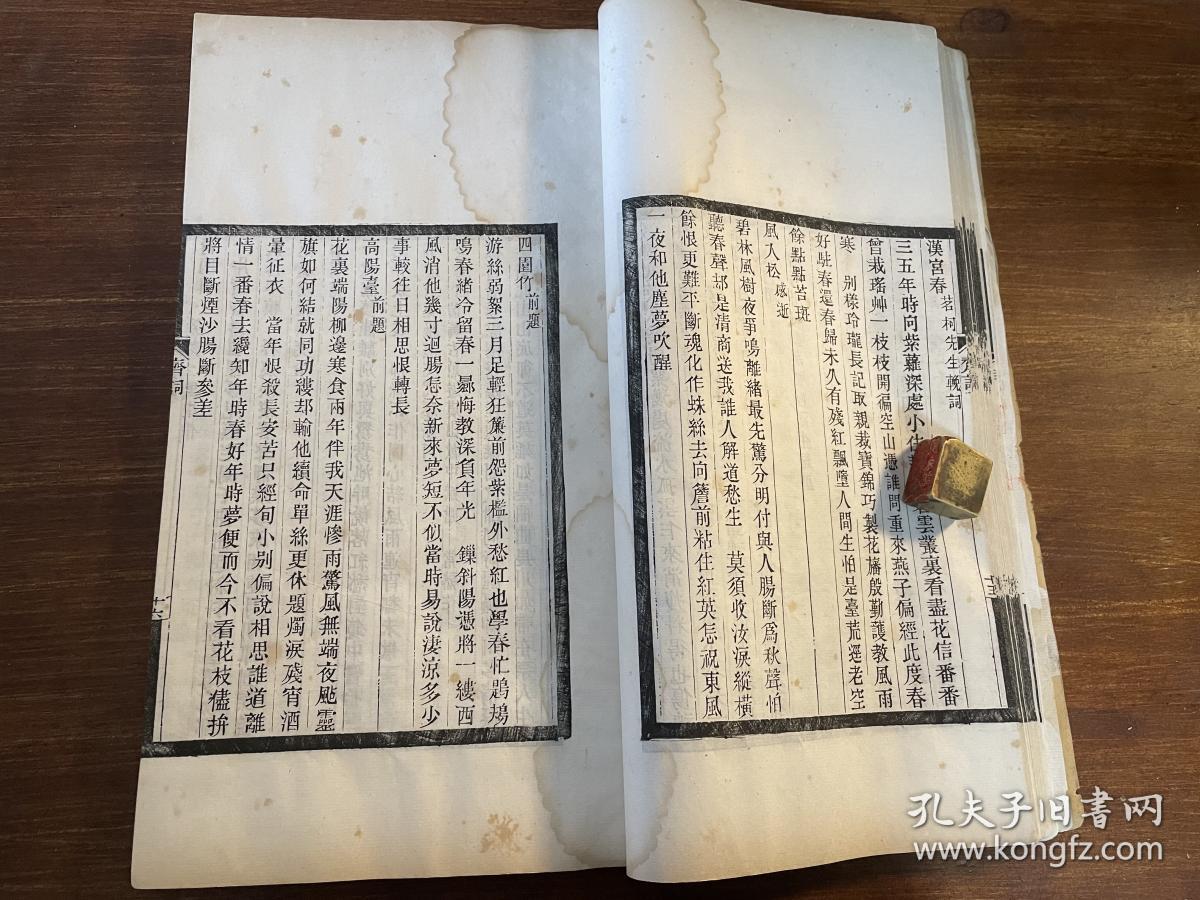 漢宮春 茗柯先生輓詞
三五年時問紫蘿深處小住
雲叢裏看盡花信番番
曾栽瑤艸一枝枝開徧空山憑誰問重來燕子偏經此度春
寒 别樣玲瓏長記取親栽寶錦巧製花旛殷勤護敎風雨
好駐春還春歸未久有殘紅飄墮人間生怕是臺荒逕老空
餘點點苔斑
風入松 感逝
碧林風樹夜爭鳴離緒最先驚分明付與人腸斷爲秋聲怕
聽春聲却是清商送我誰人解道愁生 莫須收汝淚縱橫
餘恨更難平斷魂化作蛛絲去向簷前粘住紅英怎祝東風
一夜和他塵夢吹醒
四園竹 前題
游絲弱絮三月足輕狂簾前怨紫檻外愁紅也學春忙鶗鴂
鳴春緒冷留春一曏悔教深負年光 鏁斜陽憑將一縷西
風消他幾寸迴腸怎奈新來夢短不似當時易說淒涼多少
事較往日相思恨轉長
高陽臺 前題
花裏端陽柳邊寒食兩年伴我天涯慘雨驚風無端夜颭靈
旗如何結就同功縷却輸他續命單絲更休題燭淚殘宵酒
暈征衣 當年恨殺長安苦只經旬小别偏說相思誰道離
情一番春去纔知年時春好年時夢便而今不看花枝儘拚
將目斷煙沙腸斷參差
齊詞
十六
孔夫子旧书网
www.kongfz.com